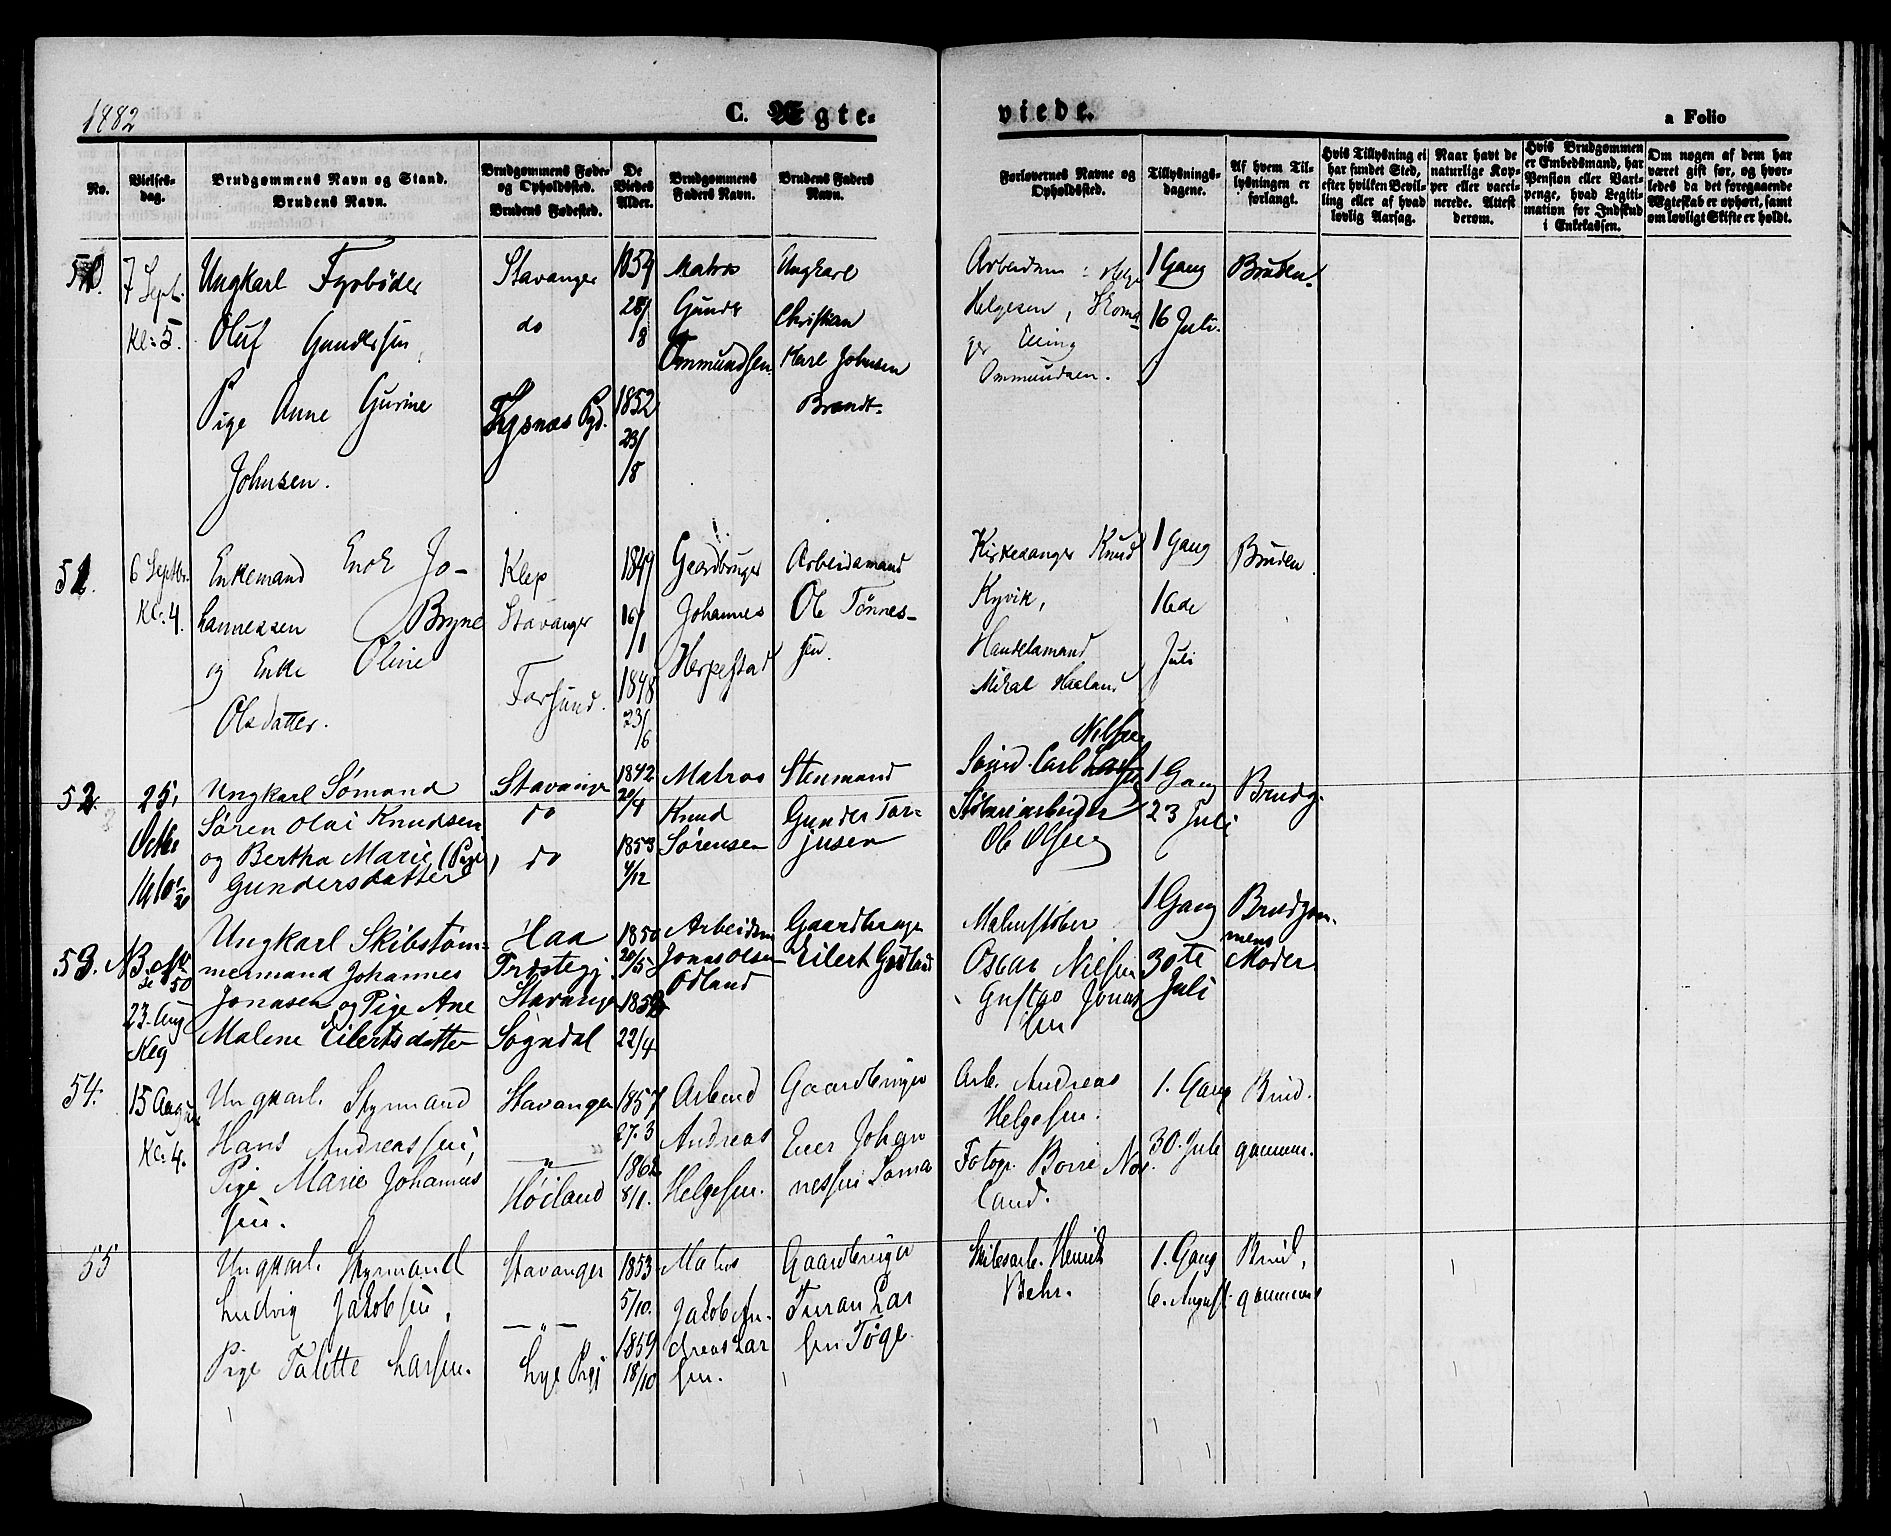 1882
C. Ægte-
viede.
a Folio
No.
Vielses-
dag.
Brudgommens Navn og Stand.
Brudens Navn.
Brudgommens Føde-
og Opholdssted.
Brudens Fødested.
De
Viedes
Alder.
Brudgommens
Faders Navn.
Brudens Faders
Navn.
Forlovernes Navne og
Opholdssted.
Tillysnings-
dagene.
Af hvem Til-
lysningen er
forlangt.
Hvis Tillysning ei
har fundet Sted,
efter hvilken Bevil-
ling eller af hvad
lovlig Aarsag.
Naar havt de
naturlige Kop-
per eller vacci-
nerede. Attest
derom.
Hvis Brudgommen
er Embedsmand, har
Pension eller Vart-
penge, hvad Legiti-
mation for Indskud
i Enkekassen.
Om nogen af dem har
været gift før, og hvor-
ledes da det foregaaende
Ægteskab er ophørt, samt
om lovligt Skifte er holdt.
50.
7 Sept.
Kl: 5.
Ungkarl Fyrbøder
Oluf Gundersen,
Pige Anne Gurine
Johnsen.
Stavanger
do
Tysnæs Pgd.
1854
28/
/8
1852
23/
/8
Matros
Gunde
Ommundsen
Ungkarl
Christian
Karl Johnsen
Brandt.
Arbeidsm: Helge
Helgesen, Skoma-
ger Ening
Ommundsen.
1 Gang
16 Juli.
Bruden.
51.
6 Septbr.
Kl: 4.
Enkemand Enok Jo-
hannessen Bryne
og Enke Oline
Olsdatter.
Klep
Stavanger
Farsund.
1849
16/
/1
1848
23/
/6
Gaardbruger
Johannes
Herpestad
Arbeidsmand
Ole Tønnes-
sen.
Kirkesanger Knud
Kyvik,
Handelsmand
Mikal Haaland
1 Gang
16de
Juli
Bruden.
52.
25.
Octbr.
Ungkarl Sømand
Søren Olai Knudsen
og Bertha Marie (Pige)
Gundersdatter
Stavanger
do
do
1842
20/4
1853
4/12
Matros
Knud
Sørensen
Stenmand
Gunder Tor-
jusen
Sømd. Carl Nilsen
arbeider
Ole Olsen
1 Gang
23 Juli
Brudg.
53.
23. Aug
Ungkarl Skibstøm-
mermand Johannes
Jonasen og Pige Ane
Malene Eilertsdatter
Haa
Præstegj.
Stavanger
Sogndal
1850
20/5
1852
22/4
Arbeidsm
Jonas Olsen
Odland
Gaardbruger
Eilert Godland
Malmstøber
Oscar Nielsen
Gustav Jonas
sen
1 Gang
30te
Juli
Brudgom-
mens
Moder
54.
15 August
Kl: 4.
Ungkarl. Styrmand
Hans Andreassen,
Pige Marie Johannes
sen.
Stavanger
— „ —
Høiland
1857
27.3
1862
8/11.
Arbmd
Andreas
Helgesen.
Gaardbruger
Ener Johan
nessen Soma
Arb. Andreas
Helgesen.
Fotogr. Borre Nor
land.
1. Gang
30. Juli
Brud.
gommen.
55
Ungkarl. Styrmand
Ludvig Jakobsen,
Pige Talette Larsen.
Stavanger
— „ —
Lye Pgj
1853
5/10.
1859
18/10
Matros
Jakob An-
dreas Lar
sen.
Gaardbruger
Turan Lar
sen Tøge
Skibsarb. Henrik
Behr.
1. Gang
6. August
Brud,
gommen